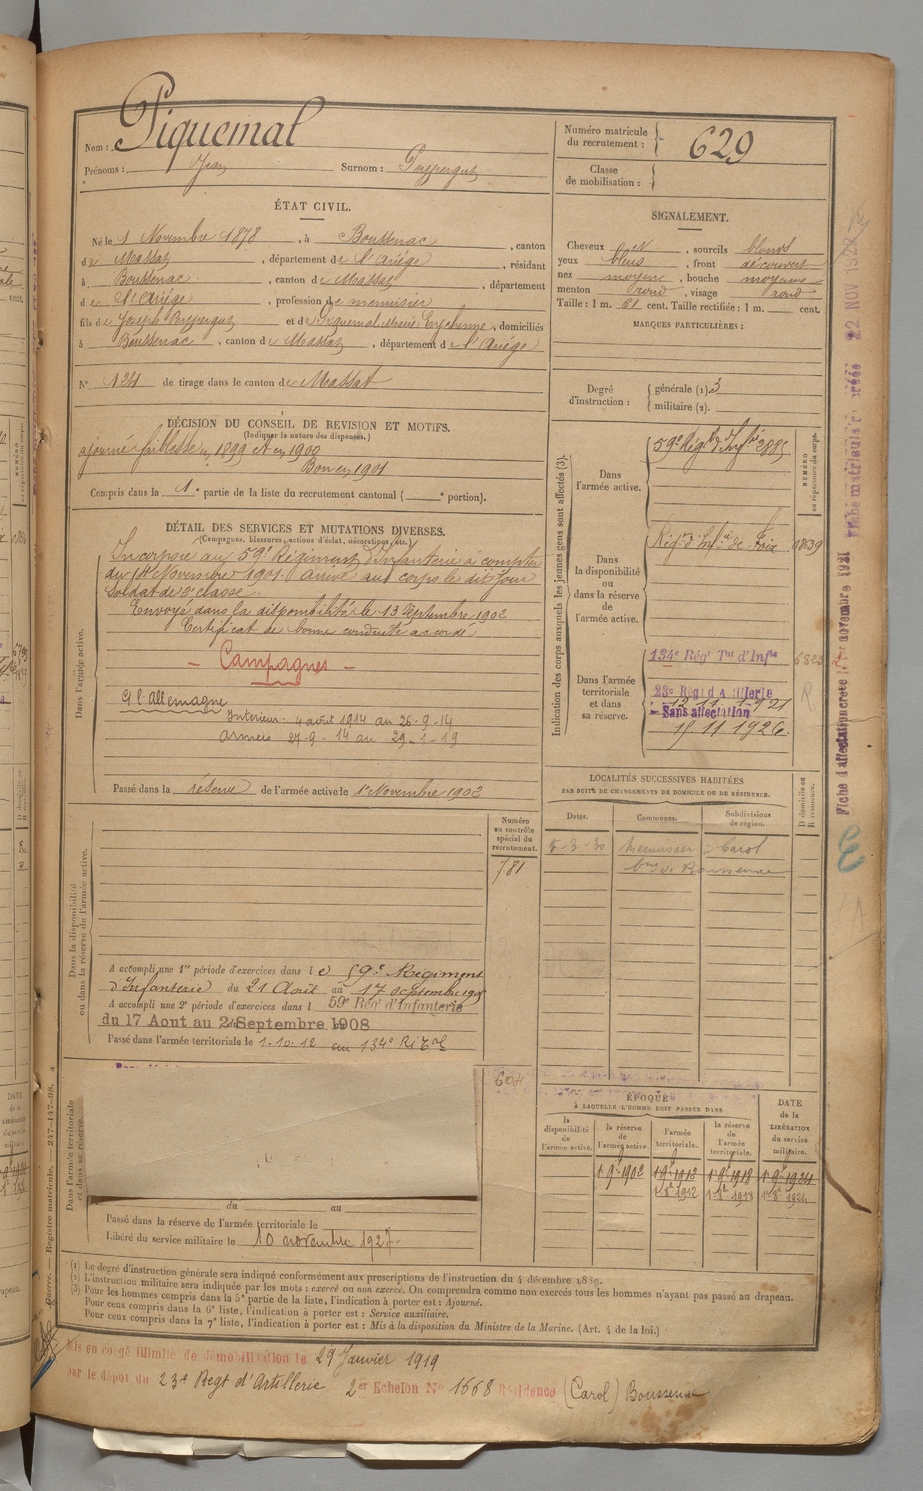 Nom : Piquemal
Prénoms : Jean Surnom :
ÉTAT CIVIL.
Né le 1 Novembre 1878, à Boussenac, canton
de Massat, département de l'Ariège, résidant
à Boussenac, canton de Massat, département
de l'Ariège, profession de menuisier
fils de Joseph et de Piquemal Marie, domiciliés
à Boussenac, canton de Massat, département de l'Ariége
N° 124 de tirage dans le canton de Massat
DÉCISION DU CONSEIL DE REVISION ET MOTIFS.
(Indiquer la nature des dispenses.)
ajourné faiblesse en 1899 et en 1900
Bon en 1901
Compris dans la 1e partie de la liste du recrutement cantonal ( e portion).
DÉTAIL DES SERVICES ET MUTATIONS DIVERSES.
(Campagnes, blessures, actions d'éclat, décorations, etc.)
Dans l'armée active.
Incorporé au 59e Régiment d'Infanterie à compter
du 14 Novembre 1901. Arrivé au corps le dit jour
soldat de 2e classe.
Envoyé dans la disponibilité le 13 Septembre 1902
Certificat de bonne conduite accordé
– Campagnes –
C/ l'Allemagne
Intérieur : 4 août 1914 au 26-9-14
Armées 27-9-14 au 29-1-19
Passé dans la réserve de l'armée active le 1er Novembre 1902
Dans la disponibilité
ou dans la réserve de l'armée active.
Numéro
au contrôle
spécial du
recrutement.
781
A accompli une 1re période d'exercices dans le 59e Régiment
d'Infanterie du 21 Août au 17 septembre
A accompli une 2e période d'exercices dans l 59e Rég' d'Infanterie
du 17 Aout au Septembre 1908
Passé dans l'armée territoriale le 1-10-12 au 134e RI
604
Dans l'armée territoriale
et dans sa réserve.
du au
Passé dans la réserve de l'armée territoriale le
Libéré du service militaire le 10 novembre 1927.
Numéro matricule
du recrutement : 629
Classe
de mobilisation :
SIGNALEMENT.
Cheveux et, sourcils blonds
yeux bleus, front découvert
nez moyen, bouche moyenne
menton rond, visage rond
Taille : 1 m. 61 cent. Taille rectifiée : 1 m. cent.
MARQUES PARTICULIÈRES :
Degré
d'instruction :
générale (1). 3
militaire (2).
Indication des corps auxquels les jeunes gens sont affectés (3).
NUMÉRO
au répertoire du corps.
Dans
l'armée active.
59e Régt d'Infie 2885
Dans
la disponibilité
ou dans la réserve
de
l'armée active.
Régt d'Infie de Foix 0839
Dans l'armée
territoriale et dans
sa réserve.
134e Régt Tal d'Infie
23e Régt d'Artillerie
Sans affectation
15 11 1926.
LOCALITÉS SUCCESSIVES HABITÉES
PAR SUITE DE CHANGEMENTS DE DOMICILE OU DE RÉSIDENCE.
Dates. Communes. Subdivisions
de région.
D domicile ou
R résidence.
5-3-30 Menuisier Carol
de Boussenac
ÉPOQUE
À LAQUELLE L'HOMME DOIT PASSER DANS
la
disponibilité
de
l'armée active.
la réserve
de
l'armée active.
l'armée
territoriale.
la réserve
de
l'armée
territoriale.
DATE
de la
LIBÉRATION
du service
militaire.
1 9bre 1902 1 9bre 1912 1 9bre 1918 1 9bre 1924
1 8bre 1912 1 8bre 1918 1 8bre 1924
(1) Le degré d'instruction générale sera indiqué conformément aux prescriptions de l'instruction du 4 décembre 1889.
(2) L'instruction militaire sera indiquée par les mots : exercé ou non exercé. On comprendra comme non exercés tous les hommes n'ayant pas passé au drapeau.
(3) Pour les hommes compris dans la 5e partie de la liste, l'indication à porter est : Ajourné.
Pour ceux compris dans la 6e liste, l'indication à porter est : Service auxiliaire.
Pour ceux compris dans la 7e liste, l'indication à porter est : Mis à la disposition du Ministre de la Marine. (Art. 4 de la loi.)
Mis en congé illimité de démobilisation le 29 Janvier 1919
par le dépôt du 23e Regt d'Artillerie 2er Echelon N° 1668 Résidence (Carol) Boussenac
Guerre. — Registre matricule. — 247-147-98.
22 NOV
Fiche matricule créée
Fiche d'affectation créée novembre 1921